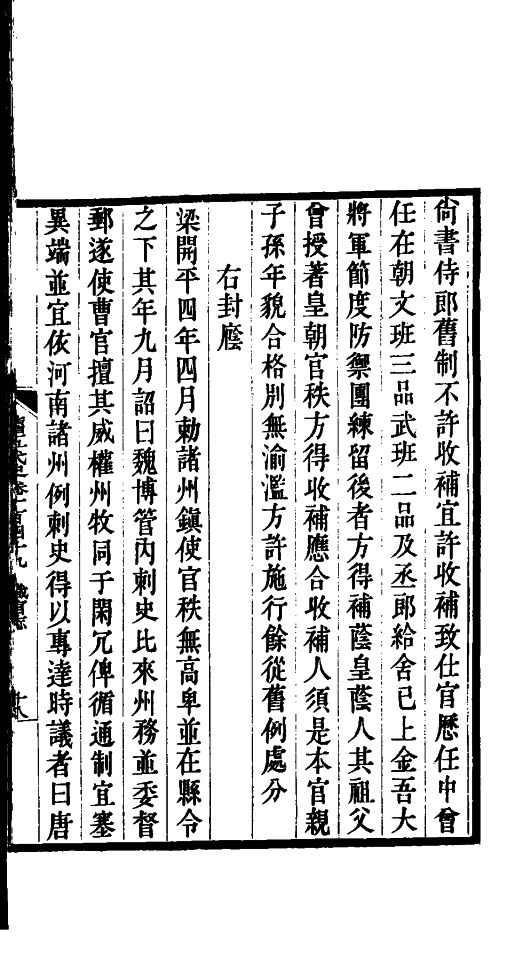 尙書侍郎舊制不許收補宜許收補致仕官歷任中曾
任在朝文班三品武班二品及丞郎給舍已上金吾大
將軍節度防禦團練留後者方得補蔭皇蔭人其祖父
曾授著皇朝官秩方得收補應合收補人須是本官親
子孫年貌合格別無渝濫方許施行餘從舊例處分
右封廕
梁開平四年四月勅諸州鎮使官秩無高卑並在縣令
之下其年九月詔曰魏博管內刺史比來州務並委督
郵遂使曹官擅其威權州牧同于閑冗俾循通制宜塞
異端並宜依河南諸州例刺史得以專達時議者曰唐
五代史卷一百四十九 職官志 十八